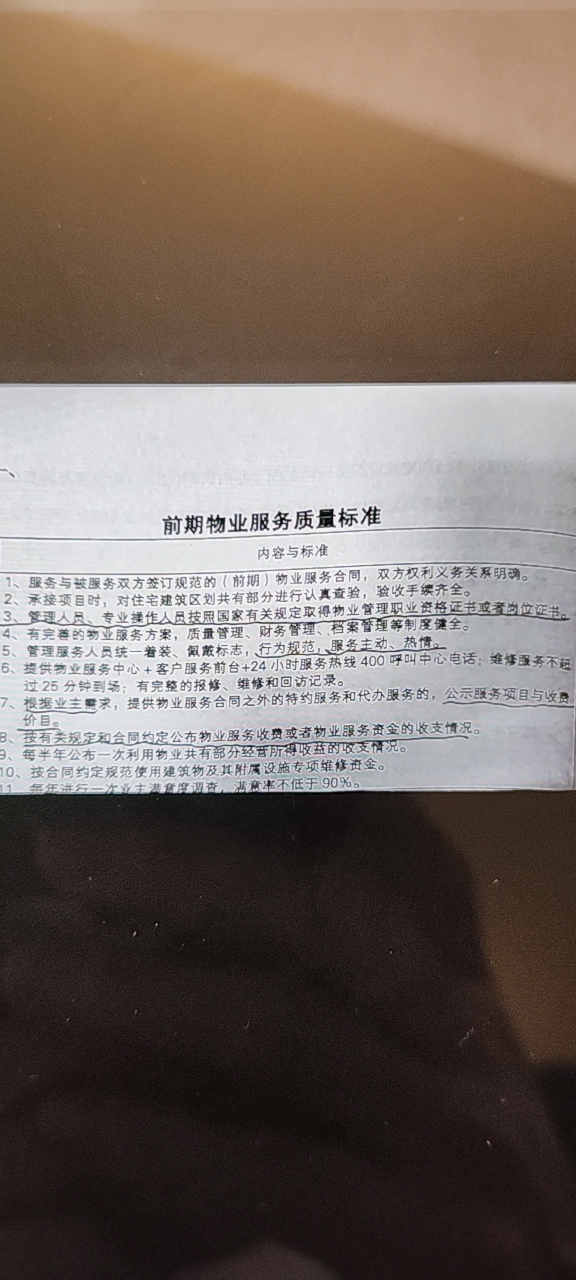 前期物业服务质量标准
内容与标准
1、服务与被服务双方签订规范的(前期)物业服务合同,双方权利义务关系明确。
2、承接项目时,对住宅建筑区划共有部分进行认真查验,验收手续齐全。
3、管理人员、专业操作人员按照国家有关规定取得物业管理职业资格证书或者岗位证书。
4、有完善的物业服务方案,质量管理、财务管理、档案管理等制度健全。
5、管理服务人员统一着装、佩戴标志,行为规范,服务主动、热情。
6、提供物业服务中心+客户服务前台+24小时服务热线400呼叫中心电话;维修服务不超
过25分钟到场;有完整的报修、维修和回访记录。
7、根据业主需求,提供物业服务合同之外的特约服务和代办服务的,公示服务项目与收费
价目。
8、按有关规定和合同约定公布物业服务收费或者物业服务资金的收支情况。
9、每半年公布一次利用物业共有部分经营所得收益的收支情况。
10、按合同约定规范使用建筑物及其附属设施专项维修资金。
11、每年进行一次业主满意度调查,满意率不低于90%。